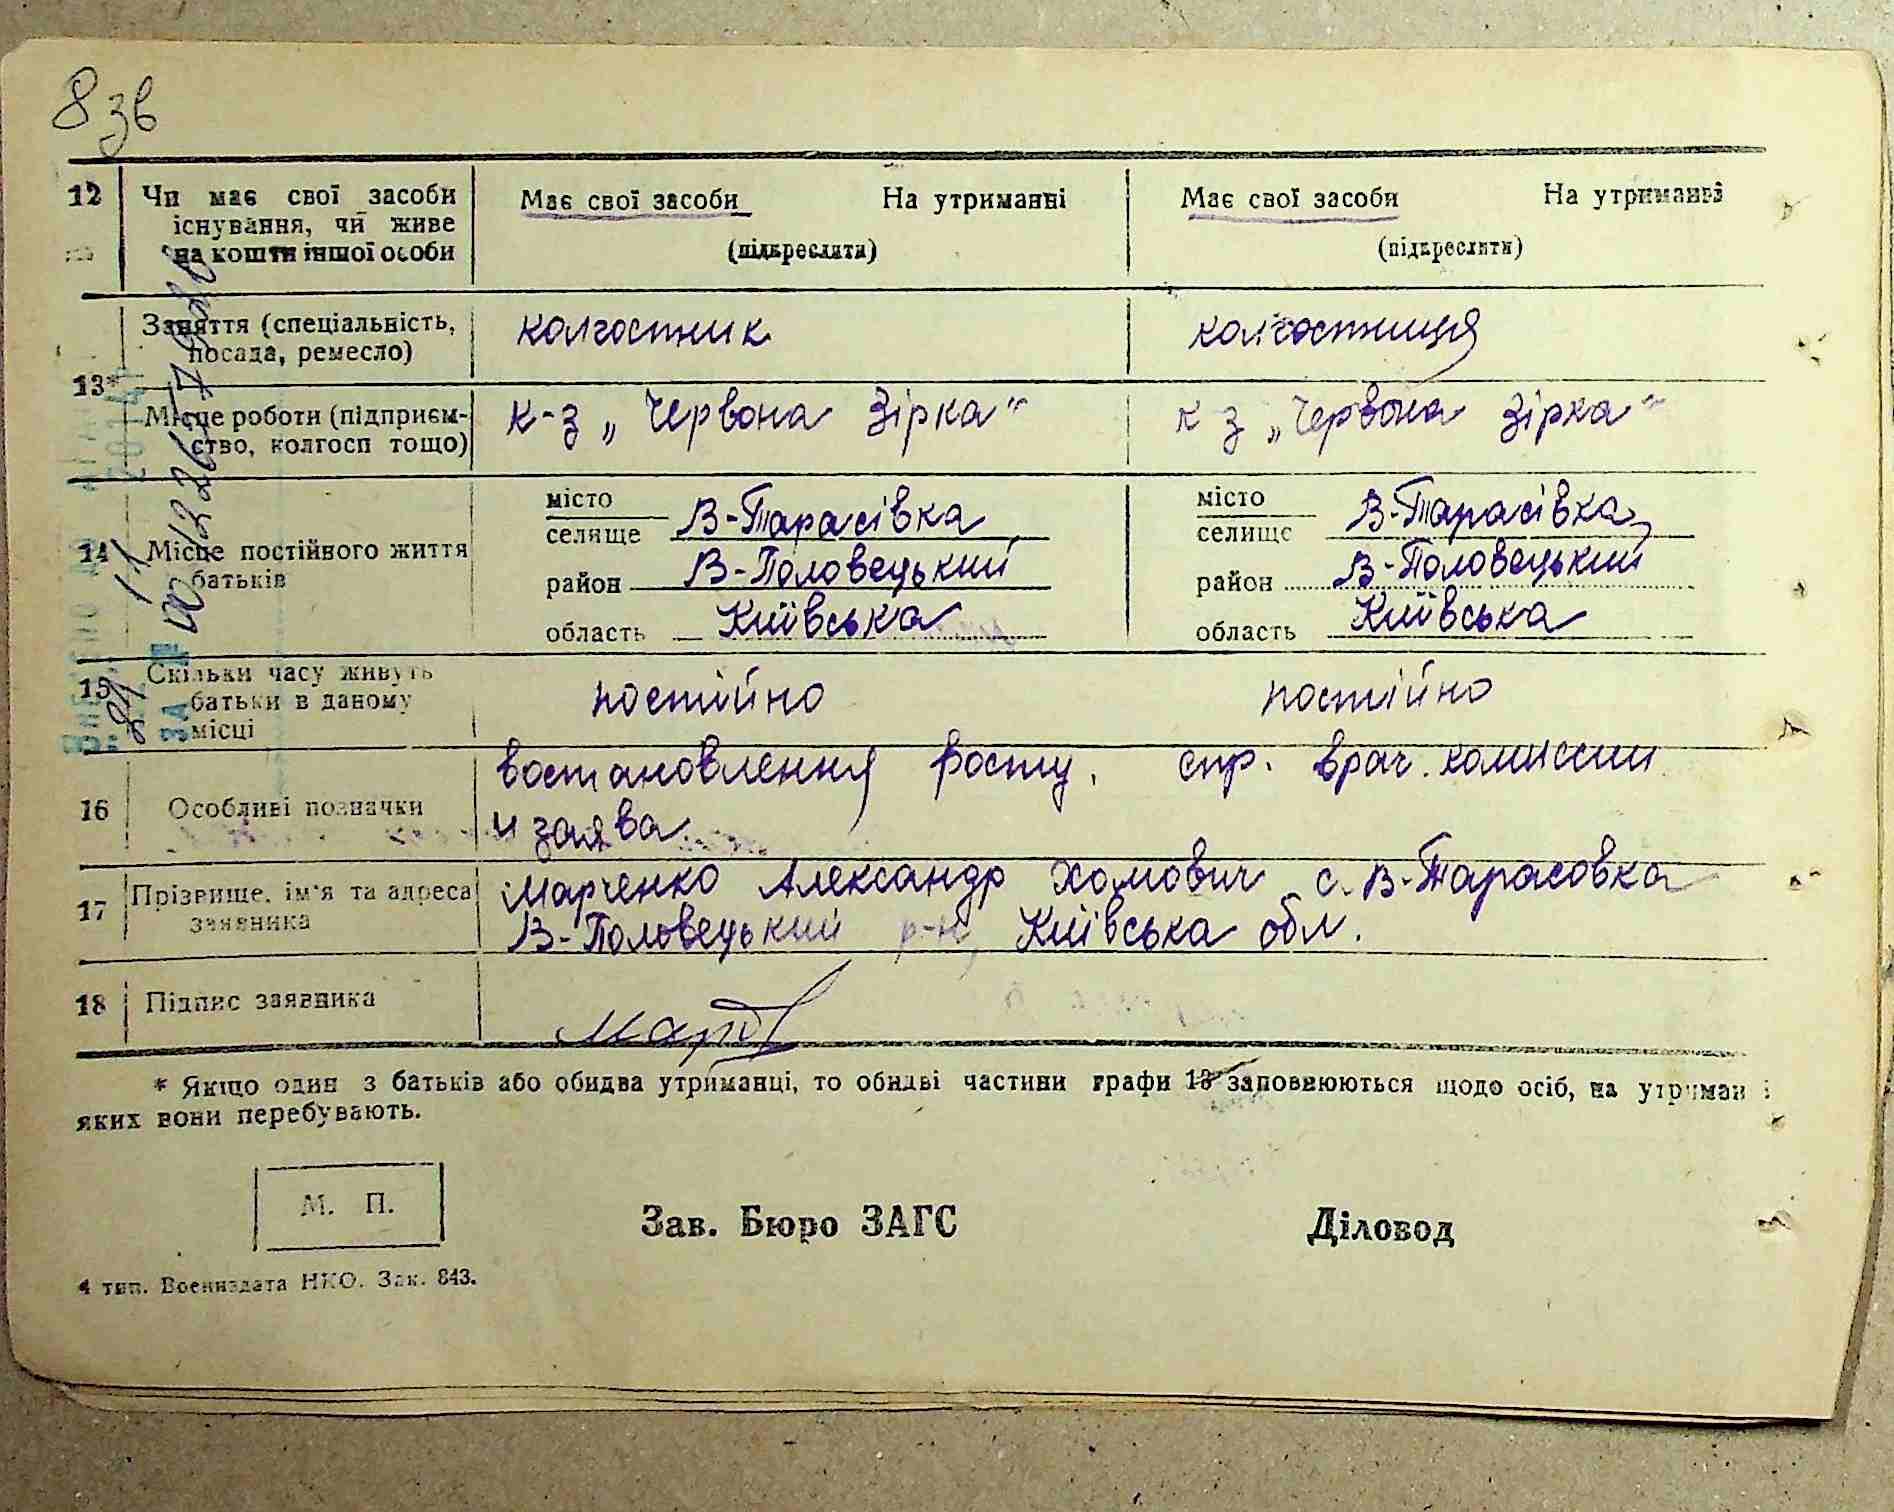 8 зв
12 Чи має свої засоби існування, чи живе на кошти іншої особи
Має свої засоби На утриманні
(підкреслити)
Має свої засоби На утриманні
(підкреслити)
13*
Заняття (спеціальність, посада, ремесло)
колгостник
колгостниця
Місце роботи (підприємство, колгосп тощо)
к-з „Червона Зірка"
к з „Червона Зірка"
14 Місце постійного життя батьків
місто
селище В-Тарасівка
район В-Половецький
область Київська
місто
селище В-Тарасівка
район В-Половецький
область Київська
15 Скільки часу живуть батьки в даному місці
постійно
постійно
16 Особливі позначки
востановлення росту. спр. врач. комиссии
и заява
17 Прізвище, ім'я та адреса заявника
Марченко Александр Хомович с. В-Тарасовка
В-Половецький р-н, Київська обл.
18 Підпис заявника
* Якщо один з батьків або обидва утриманці, то обидві частини графи 13 заповнюються щодо осіб, на утриман і
яких вони перебувають.
М. П.
Зав. Бюро ЗАГС
Діловод
4 тип. Воениздата НКО. Зак. 843.
ЗА №